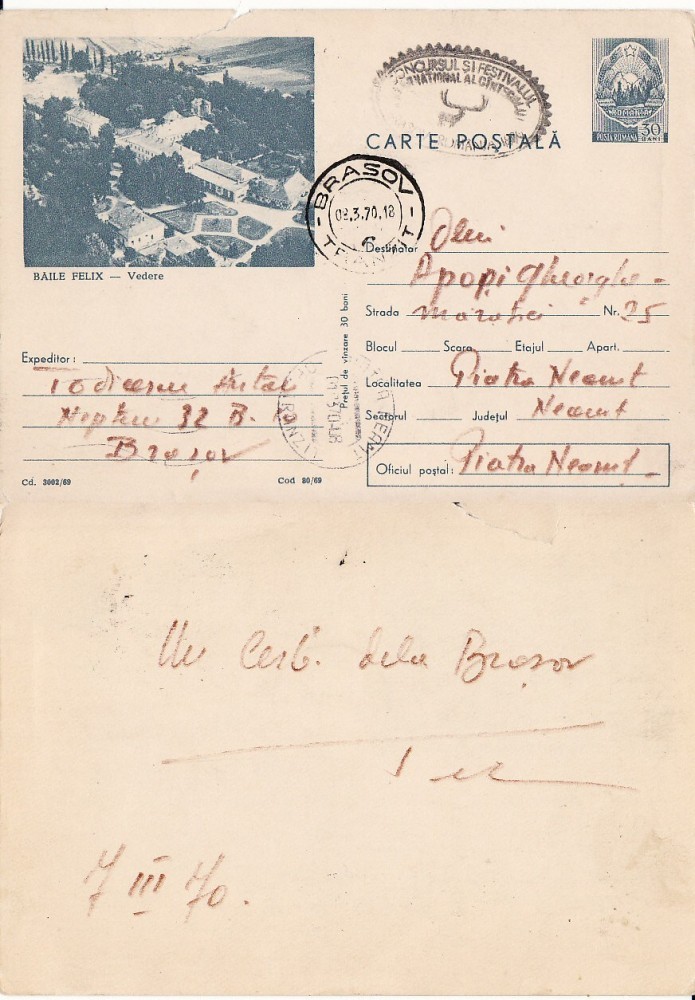 CONCURSUL SI FESTIVALUL
INTERNATIONAL AL CÎNTECULUI
ROMANIA
CARTE POSTALĂ
POSTA ROMANA
30
BANI
BRASOV
08.3.70.18
6
TRANZIT
BĂILE FELIX — Vedere
Destinatar Dlui
Apopi Gheorghe -
Strada Nr. 25
Blocul Scara Etajul Apart.
Localitatea Piatra Neamt
Sectorul Județul Neamt
Oficiul poștal: Piatra Neamt
Prețul de vînzare 30 bani
Expeditor:
Neptun 32 B.
Brașov
Cd. 3002/69 Cod 80/69
Un Cerb. dela Brașov
7 III 70.